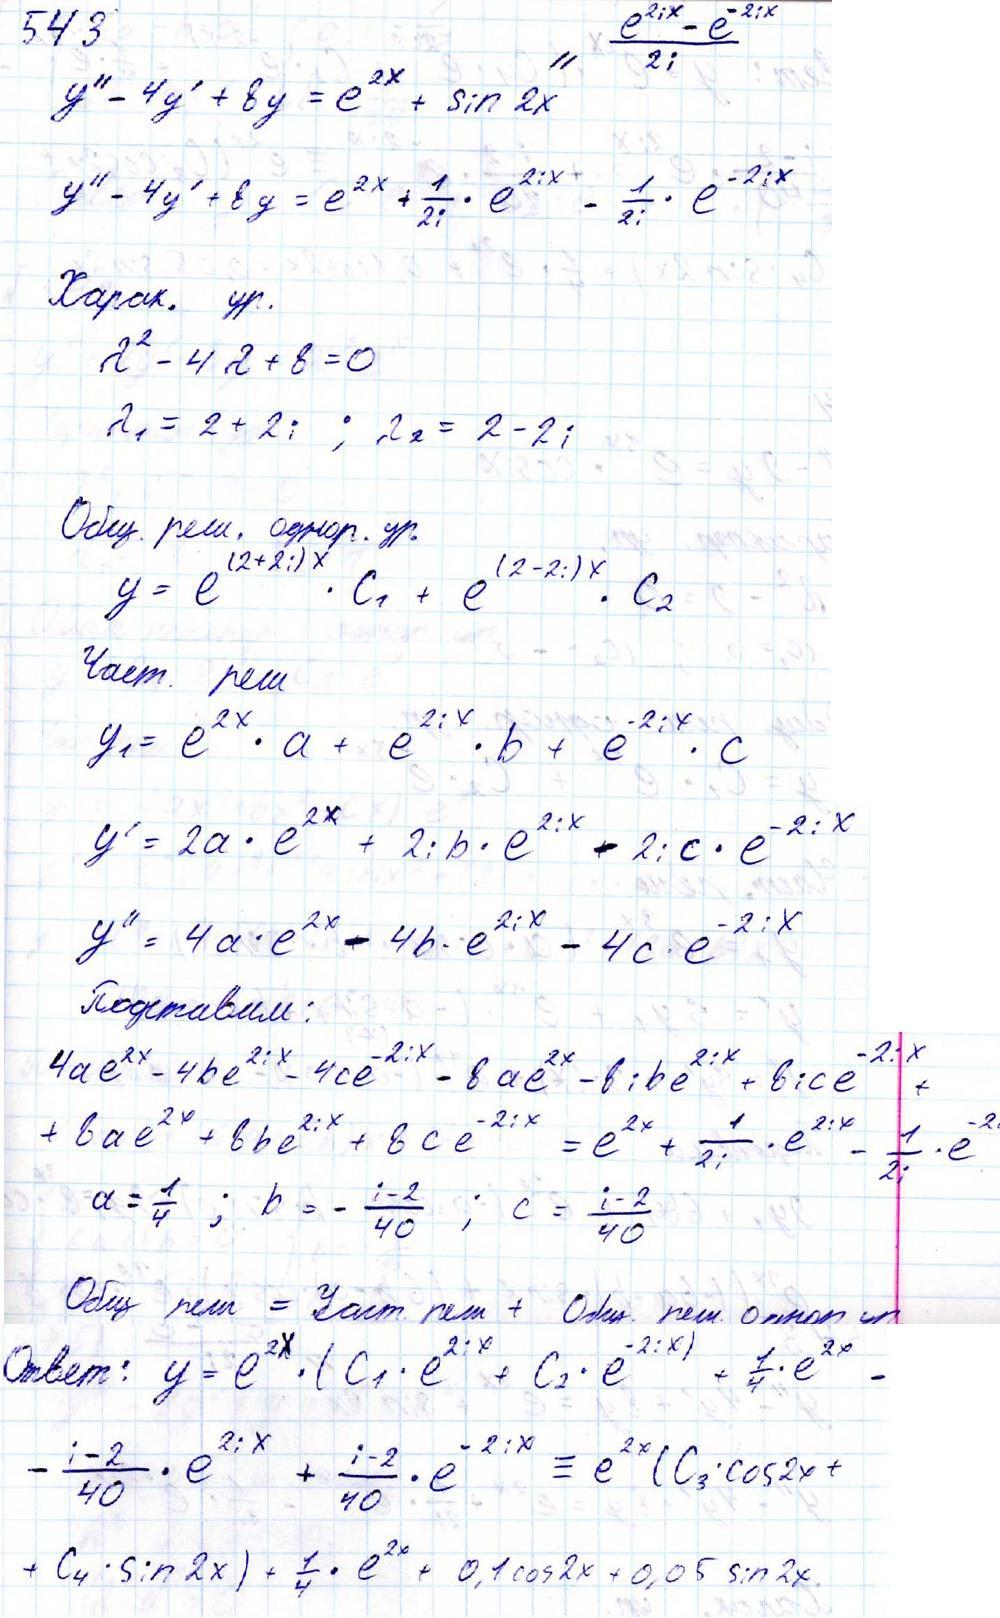 543
(e^{2ix} - e^{-2ix}) / 2i
y'' - 4y' + 8y = e^{2x} + sin 2x
y'' - 4y' + 8y = e^{2x} + 1/2i · e^{2ix} - 1/2i · e^{-2ix}
Харак. ур.
λ² - 4λ + 8 = 0
λ₁ = 2 + 2i ; λ₂ = 2 - 2i
Общ. реш. однор. ур.
y = e^{(2+2i)x} · C₁ + e^{(2-2i)x} · C₂
Част. реш
y₁ = e^{2x} · a + e^{2ix} · b + e^{-2ix} · c
y' = 2a · e^{2x} + 2ib · e^{2ix} - 2ic · e^{-2ix}
y'' = 4a · e^{2x} - 4b · e^{2ix} - 4c · e^{-2ix}
Подставим:
4ae^{2x} - 4be^{2ix} - 4ce^{-2ix} - 8ae^{2x} - 8ibe^{2ix} + 8ice^{-2ix} +
+ 8ae^{2x} + 8be^{2ix} + 8ce^{-2ix} = e^{2x} + 1/2i · e^{2ix} - 1/2i · e^{-2i
a = 1/4 ; b = - (i-2)/40 ; c = (i-2)/40
Общ реш = Част. реш + Общ. реш. однор ур
Ответ: y = e^{2x} · (C₁ · e^{2ix} + C₂ · e^{-2ix}) + 1/4 · e^{2x} -
- (i-2)/40 · e^{2ix} + (i-2)/40 · e^{-2ix} ≡ e^{2x} (C₃ · cos2x +
+ C₄ · sin 2x) + 1/4 · e^{2x} + 0,1 cos2x + 0,05 sin2x.